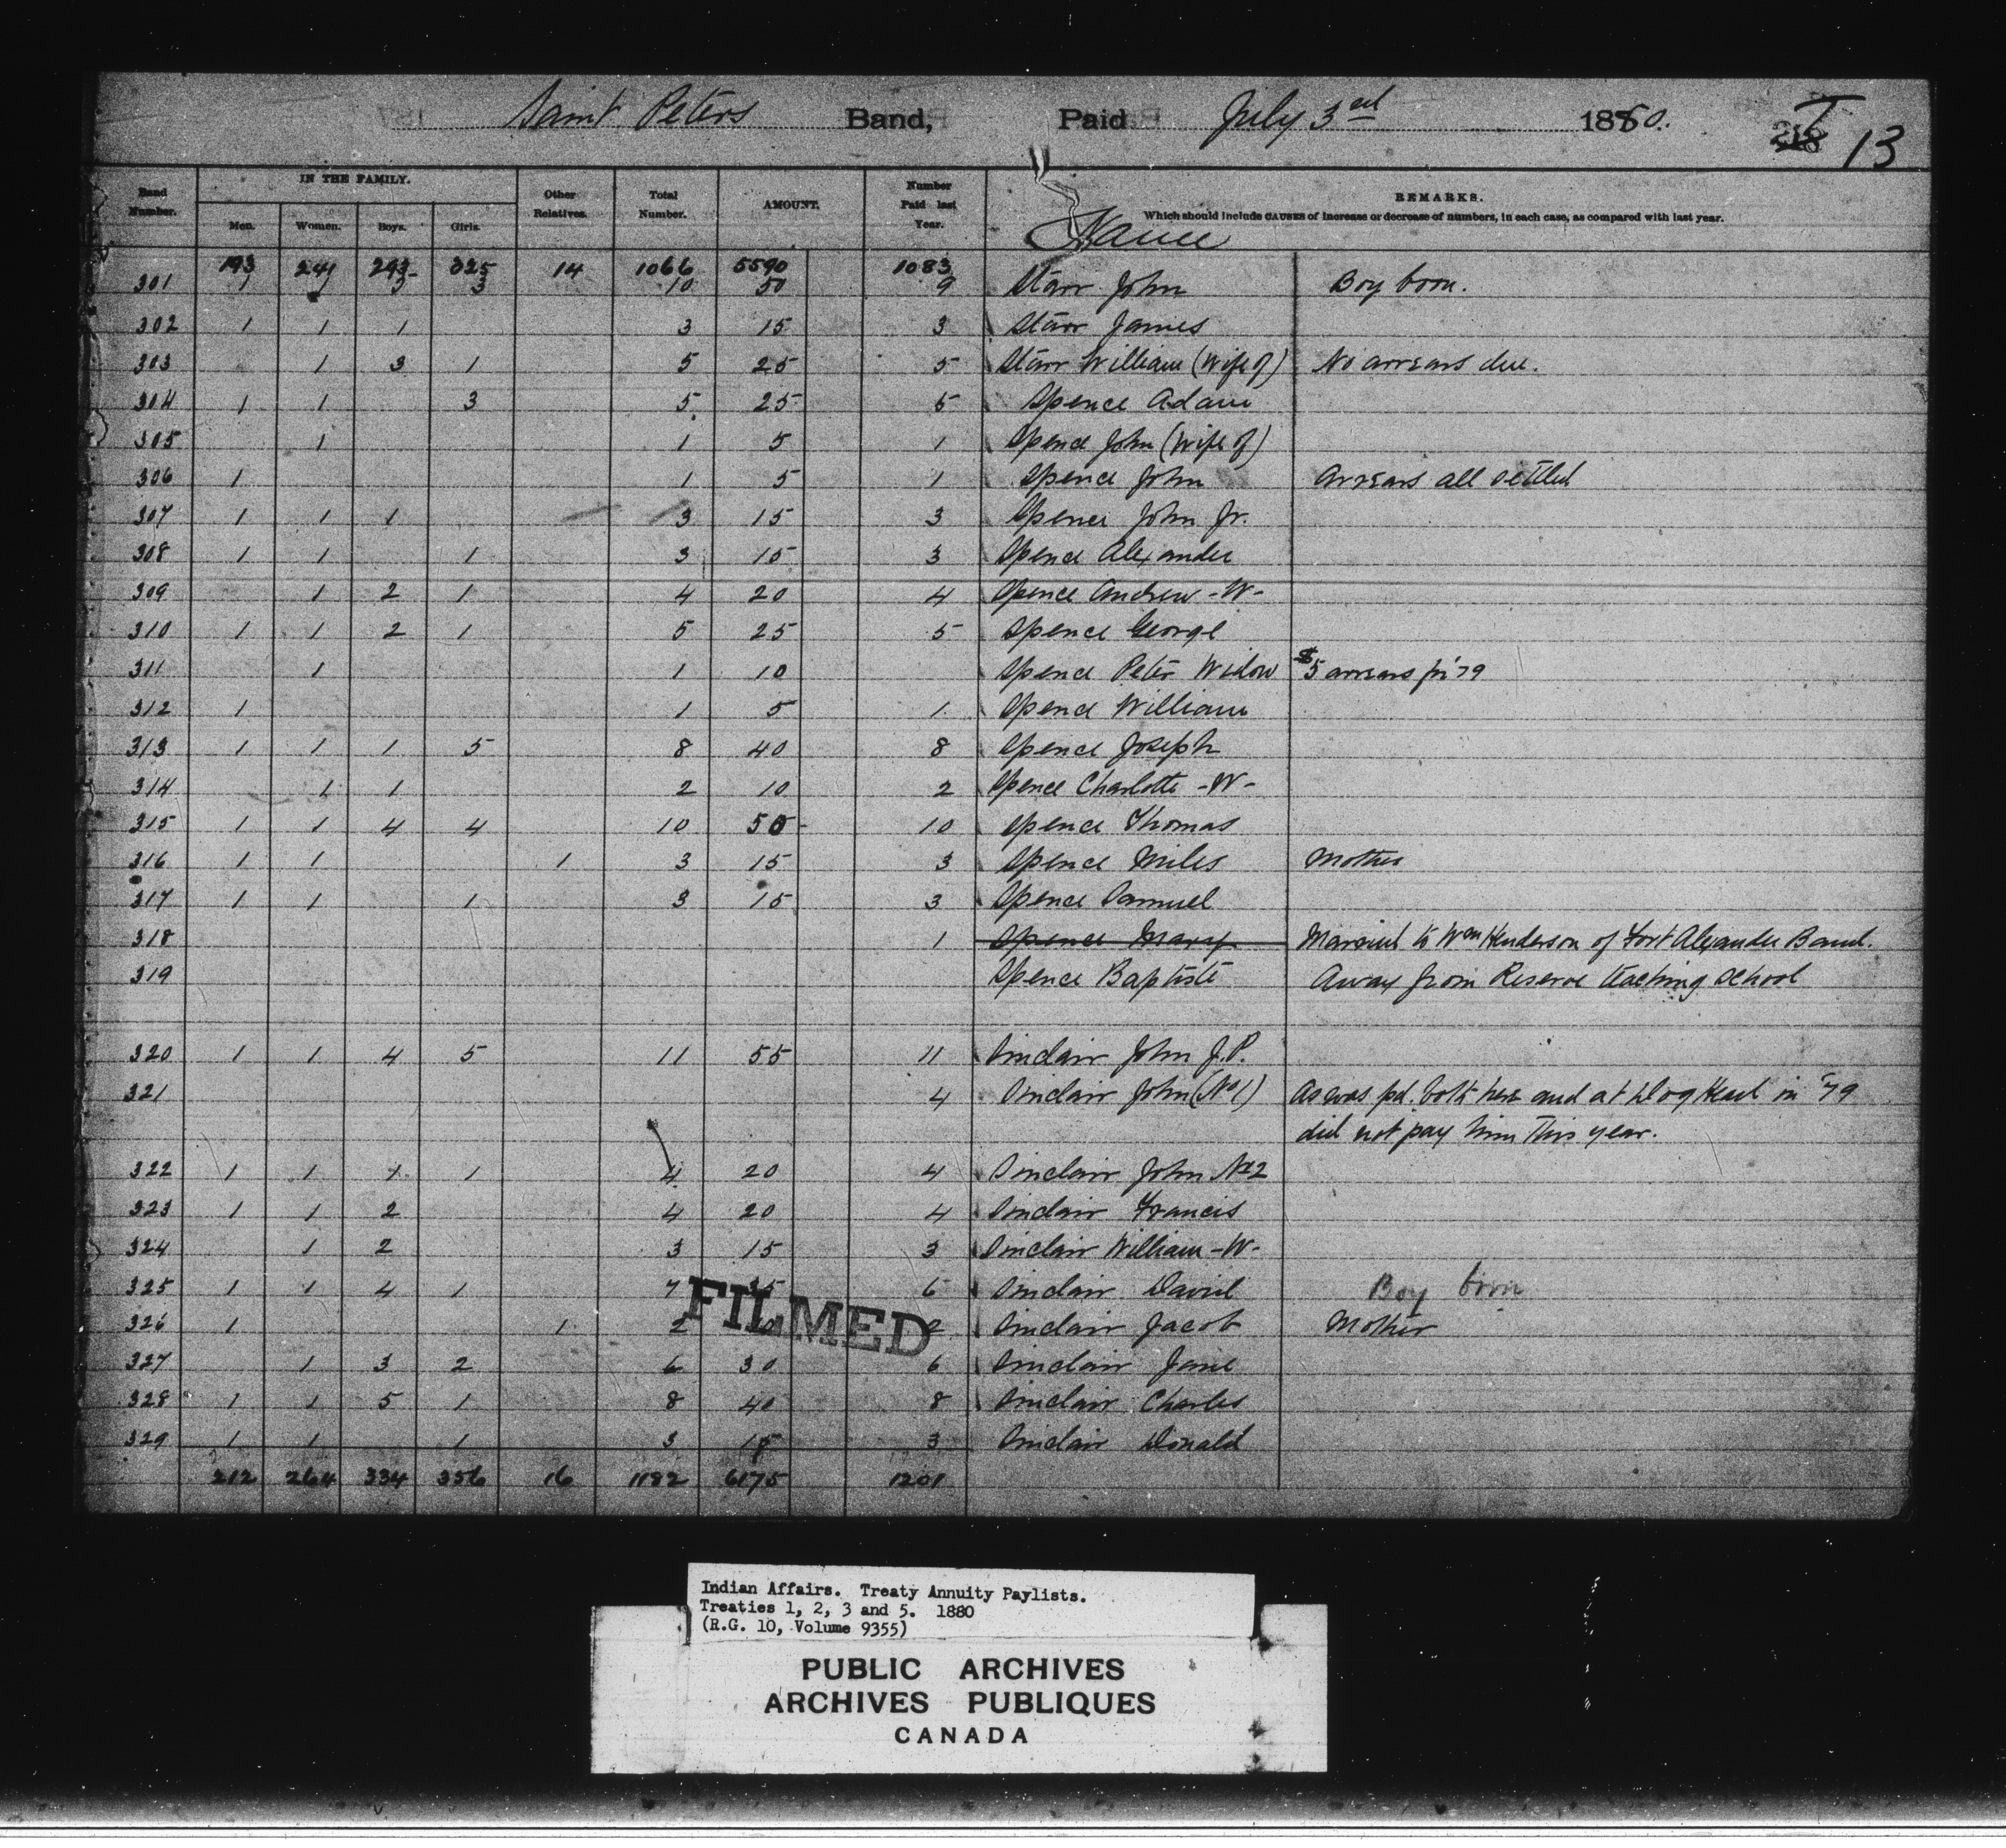 Saint Peters Band, Paid July 3rd 1880. 13
Band Number. IN THE FAMILY. Other Relatives. Total Number. AMOUNT. Number Paid last Year. REMARKS.
Men. Women. Boys. Girls. Which should include CAUSES of increase or decrease of numbers, in each case, as compared with last year.
Name
193 241 293 325 14 1066 5590 1083
301 1 3 3 10 50 9 Starr John Boy born.
302 1 1 1 3 15 3 Starr James
303 1 3 1 5 25 5 Starr William (Wife of) No arrears due.
304 1 1 3 5 25 5 Spence Adam
305 1 1 5 1 Spence John (Wife of)
306 1 1 5 1 Spence John Arrears all settled
307 1 1 1 3 15 3 Spence John Jr.
308 1 1 1 3 15 3 Spence Alexander
309 1 2 1 4 20 4 Spence Andrew -W-
310 1 1 2 1 5 25 5 Spence George
311 1 1 10 Spence Peter Widow $5 arrears for '79
312 1 1 5 1 Spence William
313 1 1 1 5 8 40 8 Spence Joseph
314 1 1 2 10 2 Spence Charlotte -W-
315 1 1 4 4 10 50 10 Spence Thomas
316 1 1 1 3 15 3 Spence Miles Mother
317 1 1 1 3 15 3 Spence Samuel
318 1 Spence Mary Married to Wm Henderson of Fort Alexander Band.
319 Spence Baptiste Away from Reserve teaching school
320 1 1 4 5 11 55 11 Sinclair John J.P.
321 4 Sinclair John (No 1) As was pd. both here and at Dog Head in '79
did not pay him this year.
322 1 1 1 1 4 20 4 Sinclair John No 2
323 1 1 2 4 20 4 Sinclair Francis
324 1 2 3 15 3 Sinclair William -W-
325 1 1 4 1 7 35 6 Sinclair David Boy born
326 1 1 2 10 2 Sinclair Jacob Mother
FILMED
327 1 3 2 6 30 6 Sinclair Jane
328 1 1 5 1 8 40 8 Sinclair Charles
329 1 1 1 3 15 3 Sinclair Donald
212 264 334 356 16 1182 6175 1201
Indian Affairs. Treaty Annuity Paylists.
Treaties 1, 2, 3 and 5. 1880
(R.G. 10, Volume 9355)
PUBLIC ARCHIVES
ARCHIVES PUBLIQUES
CANADA